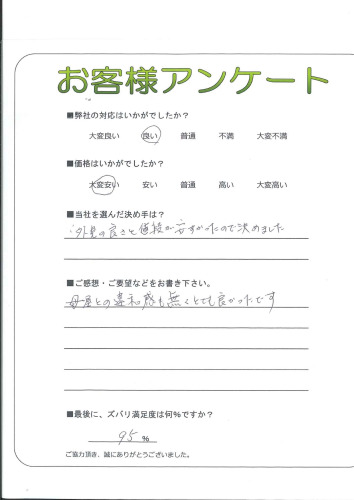 お客様アンケート
■弊社の対応はいかがでしたか？
大変良い 良い 普通 不満 大変不満
■価格はいかがでしたか？
大変安い 安い 普通 高い 大変高い
■当社を選んだ決め手は？
外見の良さと値段が安すかったので決めました
■ご感想・ご要望などをお書き下さい。
母屋との違和感も無くとても良かったです
■最後に、ズバリ満足度は何%ですか？
95 %
ご協力頂き、誠にありがとうございました。